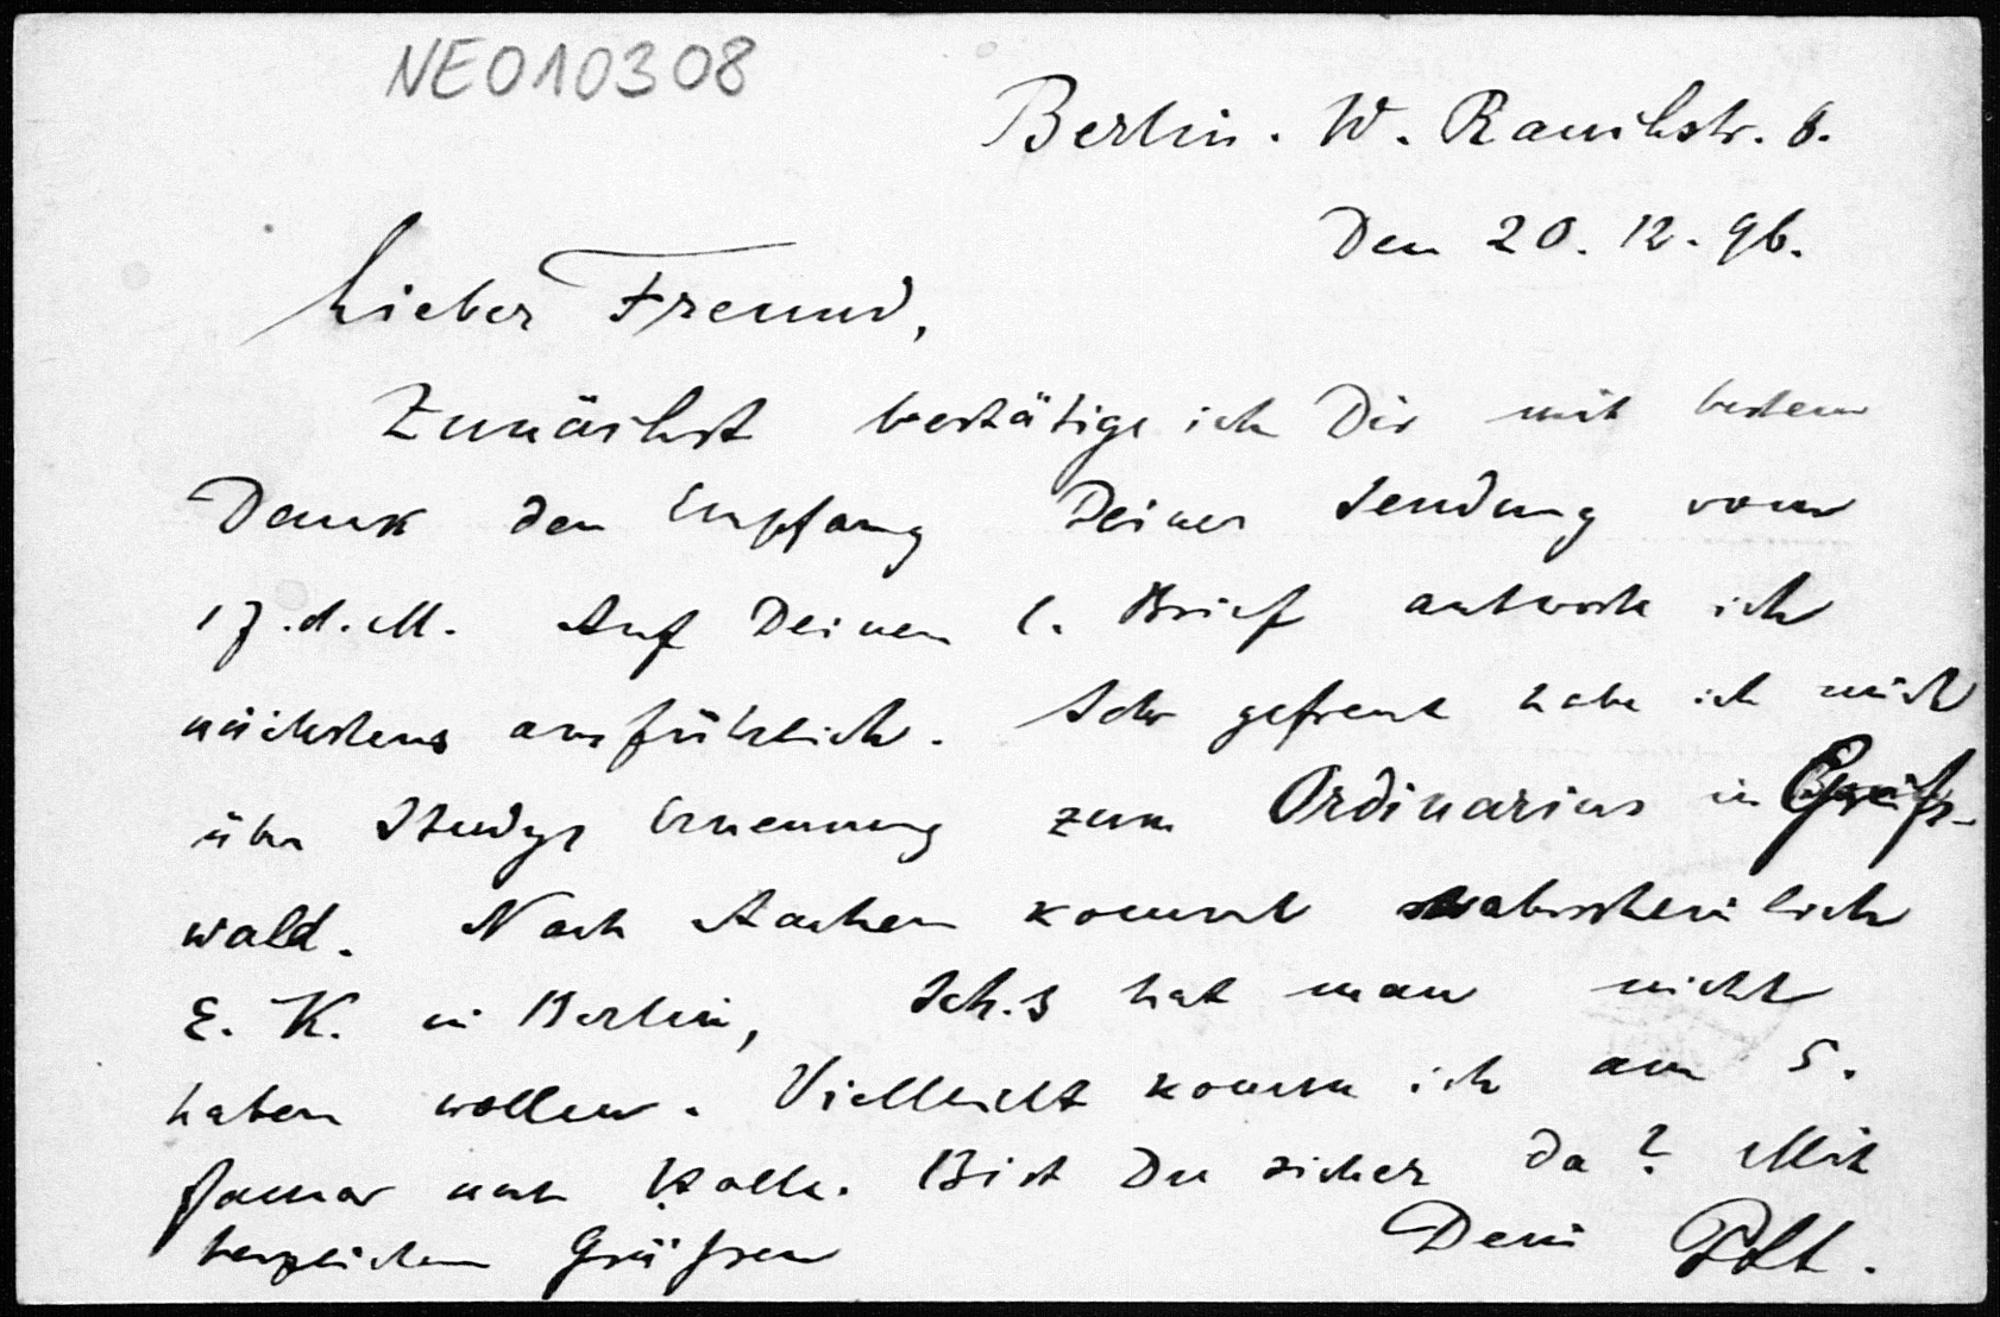 NE010308
Berlin. W. Rauchstr. 6.
Den 20. 12. 96.
Lieber Freund,
Zunächst bestätige ich Dir mit bestem
Dank den Empfang Deiner Sendung vom
17. d. M. Auf Deinen l. Brief antworte ich
nächstens ausführlich. Sehr gefreut habe ich mich
über Studys Ernennung zum Ordinarius in Greifs-
wald. Nach Aachen kommt wahrscheinlich
E. K. in Berlin, Sch.s hat man nicht
haben wollen. Vielleicht komme ich am 5.
Januar nach Halle. Bist Du sicher da? Mit
herzlichen Grüssen Dein